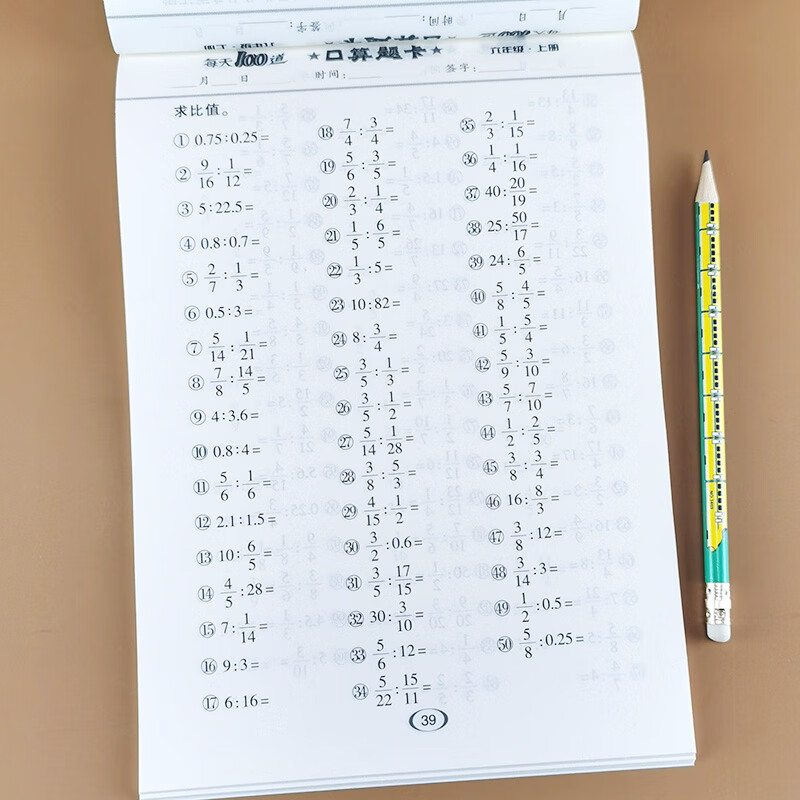 每天100道 ★口算题卡★ 六年级·上册
月 日 时间: 签字:
求比值。
① 0.75:0.25=
② 9/16:1/12=
③ 5:22.5=
④ 0.8:0.7=
⑤ 2/7:1/3=
⑥ 0.5:3=
⑦ 5/14:1/21=
⑧ 7/8:14/5=
⑨ 4:3.6=
⑩ 0.8:4=
⑪ 5/6:1/6=
⑫ 2.1:1.5=
⑬ 10:6/5=
⑭ 4/5:28=
⑮ 7:1/14=
⑯ 9:3=
⑰ 6:16=
⑱ 7/4:3/4=
⑲ 5/6:3/5=
⑳ 2/3:1/4=
㉑ 1/5:6/5=
㉒ 1/3:5=
㉓ 10:82=
㉔ 8:3/4=
㉕ 3/5:1/3=
㉖ 3/5:1/2=
㉗ 5/14:1/28=
㉘ 3/8:5/3=
㉙ 4/15:1/2=
㉚ 3/2:0.6=
㉛ 3/5:17/15=
㉜ 30:3/10=
㉝ 5/6:12=
㉞ 5/22:15/11=
㉟ 2/3:1/15=
㊱ 1/4:1/16=
㊲ 40:20/19=
㊳ 25:50/17=
㊴ 24:6/5=
㊵ 5/8:4/5=
㊶ 1/5:5/4=
㊷ 5/9:3/10=
㊸ 5/7:7/10=
㊹ 1/2:2/5=
㊺ 3/8:3/4=
㊻ 16:8/3=
㊼ 3/8:12=
㊽ 3/14:3=
㊾ 1/2:0.5=
㊿ 5/8:0.25=
39